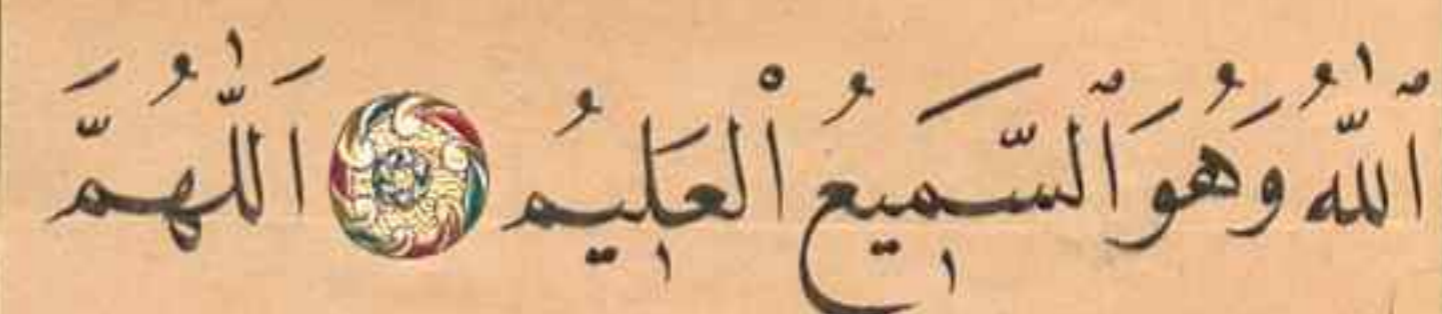 ٱللّٰهُ وَهُوَ ٱلسَّمِيعُ الْعَلِيمُ اَللّٰهُمَّ